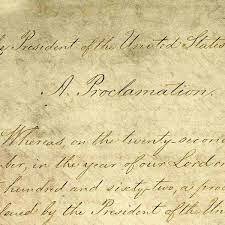 President of the United States
A Proclamation.
Whereas, on the twenty-second
ber, in the year of our Lord
hundred and sixty-two, a proc
sued by the President of the Un